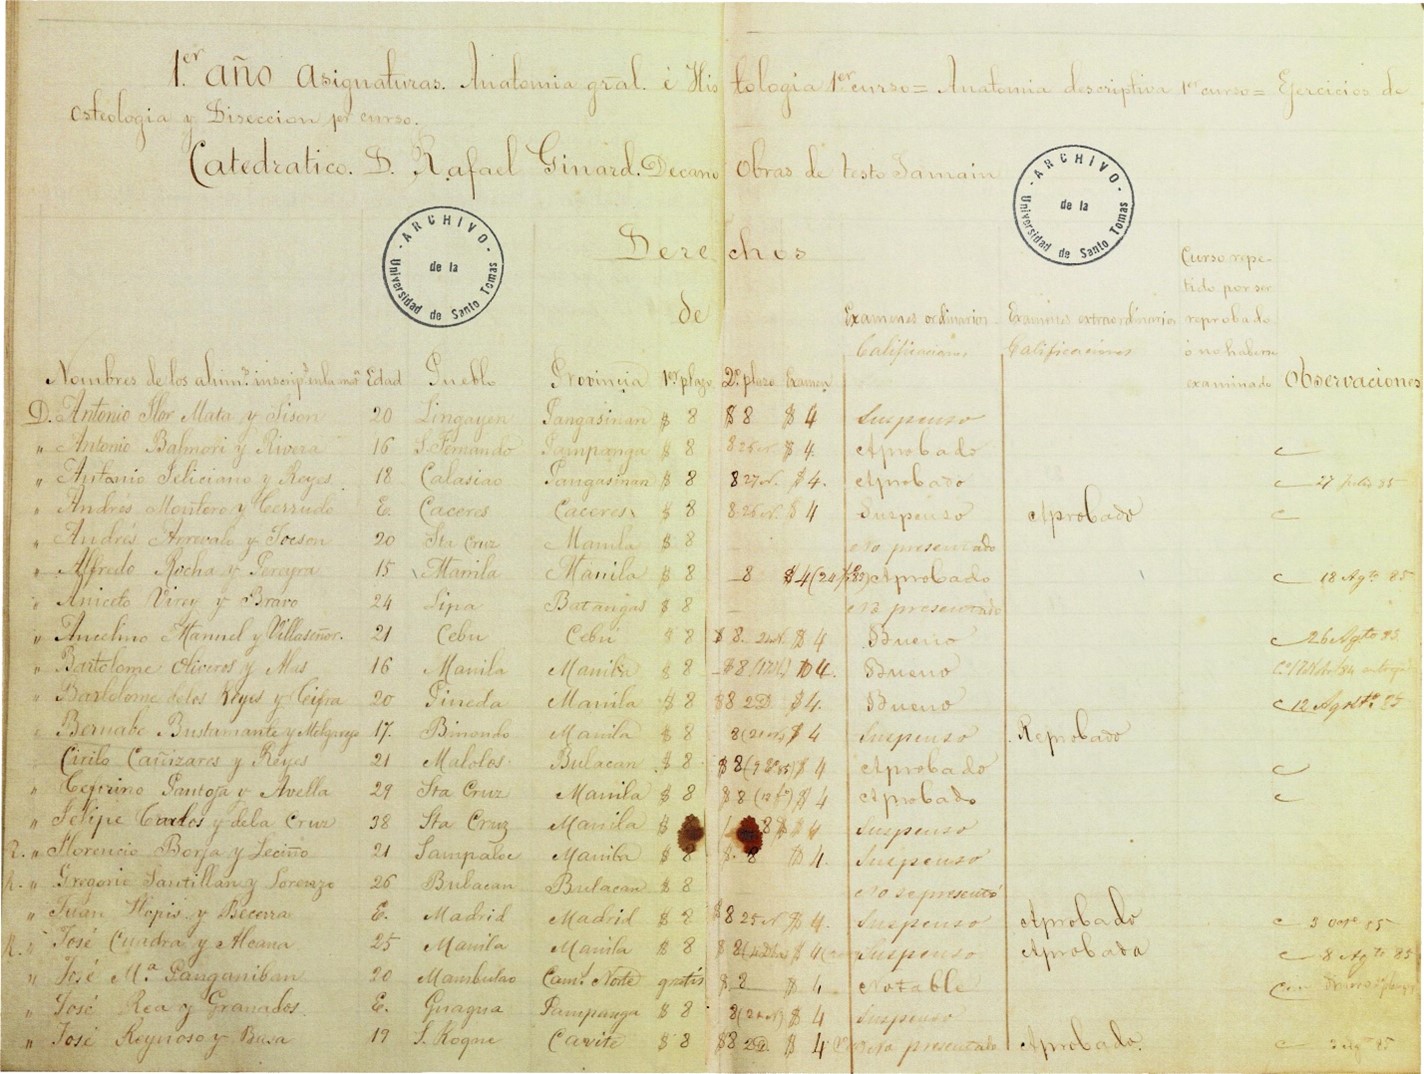 1.er año Asignaturas. Anatomia gral. é Histologia 1er curso = Anatomia descriptiva 1er curso = Ejercicios de
Osteologia y Diseccion 1er curso.
Catedratico. D. Rafael Ginard. Decano Obras de testo Jamain
ARCHIVO de la Universidad de Santo Tomas
ARCHIVO de la Universidad de Santo Tomas
Derechos
de
Curso repe-
tido por ser
Examenes ordinarios Examenes extraordinarios reprobado
Calificaciones Calificaciones ó no haberse
Nombres de los alumos. Edad Pueblo Provincia 1er plazo 2o. plazo Examen examinado Observaciones
D. Antonio Flor Mata y Sison 20 Lingayen Pangasinan $ 8 $ 8 $ 4 Suspenso
" Antonio Balmori y Rivera 16 S. Fernando Pampanga $ 8 8 25 N. $ 4. Aprobado
" Antonio Feliciano y Reyes 18 Calasiao Pangasinan $ 8 8 27 N. $ 4. Aprobado 27 Julio 85
" Andrés Montero y Cerrudo E. Caceres Caceres $ 8 8 26 N. $ 4 Suspenso Aprobado
" Andrés Arrevalo y Tocson 20 Sta Cruz Manila $ 8 No presentado
" Alfredo Rocha y Pereyra 15 Manila Manila $ 8 8 $ 4 Aprobado 18 Agto 85
" Aniceto Virey y Bravo 24 Lipa Batangas $ 8 No presentado
" Ancelmo Manuel y Villaseñor. 21 Cebu Cebú $ 8 $ 8. $ 4 Bueno 26 Agto 85
" Bartolome Oliveros y Mas 16 Manila Manila $ 8 $ 8 $ 4. Bueno
" Bartolome de los Reyes y Cifra 20 Pineda Manila $ 8 $ 8 2 D. $ 4. Bueno 12 Agsto. 85
Bernabe Bustamante y Melgarejo 17. Binondo Manila $ 8 8 $ 4 Suspenso Reprobado
Cirilo Cañizares y Reyes 21 Malolos Bulacan $ 8 $ 8 $ 4 Aprobado
" Ceferino Pantoja y Avella 29 Sta Cruz Manila $ 8 $ 8 $ 4 Aprobado
" Felipe y dela Cruz 38 Sta Cruz Manila $ 8 $ 4 Suspenso
R. " Florencio Borja y Leciño 21 Sampaloc Manila $ 8 8 $ 4. Suspenso
R. " Gregorio Santillan y Lorenzo 26 Bulacan Bulacan $ 8 No se presentó
" Juan Hopis y Becerra E. Madrid Madrid $ 8 $ 8 25 N $ 4. Suspenso Aprobado 3 Octe 85
R. " José Cuadra y Alcana 25 Manila Manila $ 8 $ 8 $ 4 Suspenso Aprobada 8 Agto 85
" José Ma. Panganiban 20 Mambulao Cams. Norte gratis $ 8 $ 4 Notable
" José Rea y Granados. E. Guagua Pampanga $ 8 8 $ 4 Suspenso
" José Reynoso y Busa 19 S. Roque Cavite $ 8 $ 8 2 D. $ 4 No presentado Aprobado.